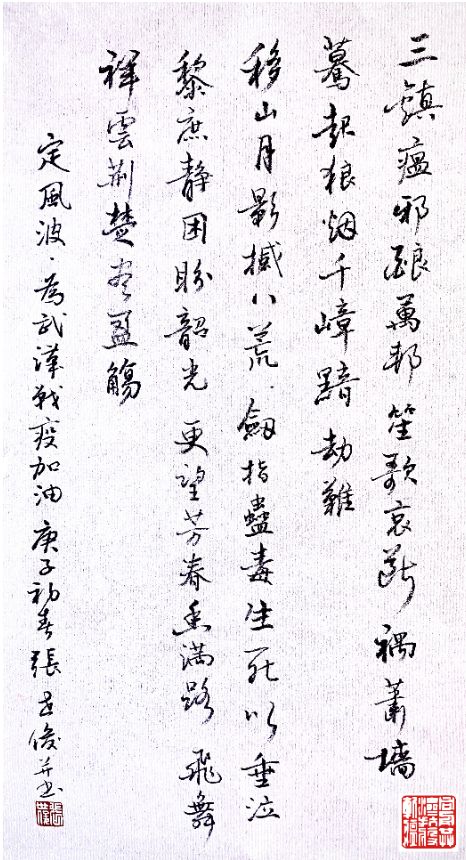 三鎮瘟邪釀萬邦笙歌哀断禍蕭墻
驀起狼烟千嶂黯劫難
移山月影撼八荒劍指蠱毒生死以垂泣
黎庶静困盼韶光更望芳春香滿路飛舞
祥雲荆楚尽盈觴
定風波·為武漢戰疫加油庚子初春張俊并书